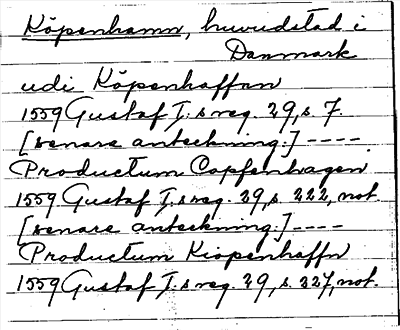 Köpenhamn, huvudstad i
Danmark
udi Köpenhaffan
1559 Gustaf I:s reg. 29, s. 7.
[senare anteckning:] ----
Productum Copfenhagen
1559 Gustaf I:s reg. 29, s. 222, not.
[senare anteckning:] ----
Productum Kiöpenhaffn
1559 Gustaf I:s reg. 29, s. 227, not.